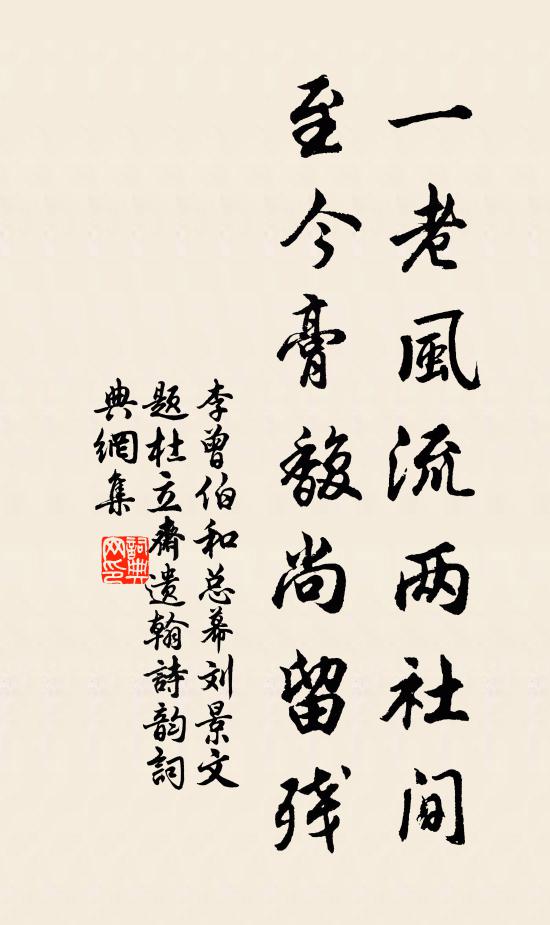 一老風流两社间
至今膏馥尚留残
李曾伯和总幕刘景文
题杜立齋遗翰詩韵詞
典網集
詞典网印